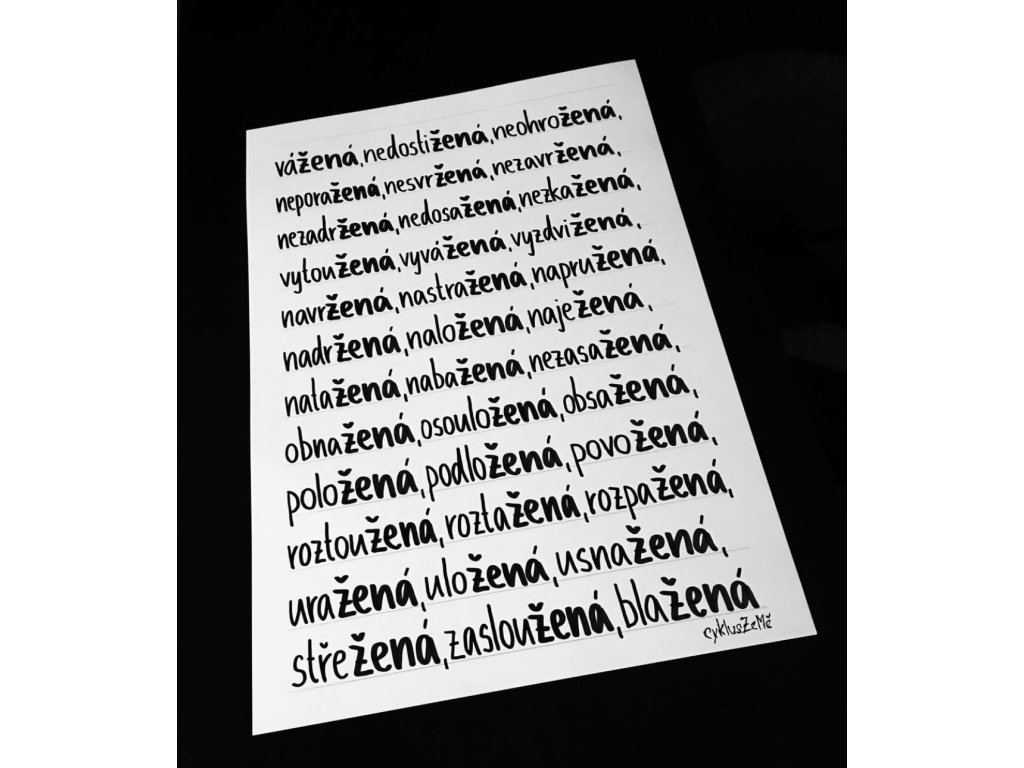 vážená, nedostižená, neohrožená,
neporažená, nesvržená, nezavržená,
nezadržená, nedosažená, nezkažená,
vytoužená, vyvážená, vyzdvižená,
navržená, nastražená, napružená,
nadržená, naložená, naježená,
natažená, nabažená, nezasažená,
obnažená, osouložená, obsažená,
položená, podložená, povožená,
roztoužená, roztažená, rozpažená,
uražená, uložená, usnažená,
střežená, zasloužená, blažená
cyklusZeMě